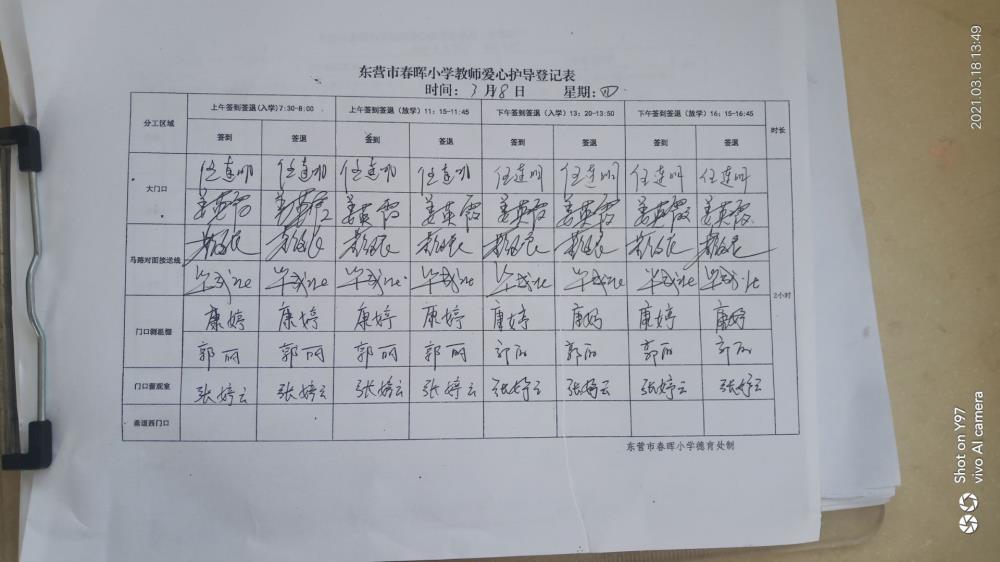 东营市春晖小学教师爱心护导登记表
时间：3月18日 星期：四
分工区域 上午签到签退(入学)7:30-8:00 上午签到签退（放学）11：15-11:45 下午签到签退(入学）13；20-13:50 下午签到签退（放学）16；15-16:45 时长
签到 签退 签到 签退 签到 签退 签到 签退
大门口 任连明 任连明 任连明 任连明 任连明 任连明 任连明 任连明
姜英霞 姜英霞 姜英霞 姜英霞 姜英霞 姜英霞 姜英霞 姜英霞
马路对面接送线
2小时
门口测温棚 康婷 康婷 康婷 康婷 康婷 康婷 康婷 康婷
郭丽 郭丽 郭丽 郭丽 郭丽 郭丽 郭丽 郭丽
门口留观室 张婷云 张婷云 张婷云 张婷云 张婷云 张婷云 张婷云 张婷云
甬道西门口
东营市春晖小学德育处制
2021.03.18 13:49
Shot on Y97
vivo AI camera